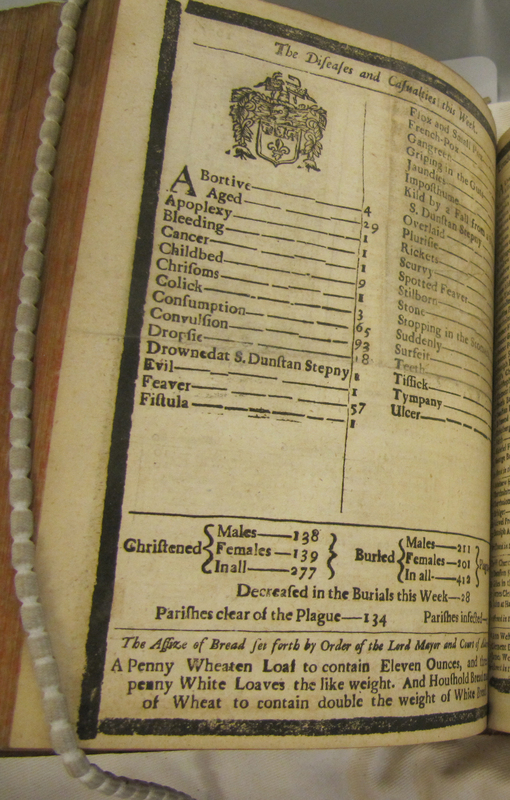 The Diſeaſes and Caſualties this Week.
ABortive 4
Aged 29
Apoplexy 1
Bleeding 1
Cancer 1
Childbed 9
Chriſoms 1
Colick 3
Conſumption 65
Convulſion 93
Dropſie 18
Drownedat S. Dunſtan Stepny 1
Evil 1
Feaver 57
Fiſtula 1
Flox and Small
French-Pox
Gangreen
Griping in the Guts
Jaundies
Impoſthume
Kild by a Fall from
S. Dunſtan Stepny
Overlaid
Pluriſie
Rickets
Scurvy
Spotted Feaver
Stilborn
Stone
Stopping in the
Suddenly
Surfeit
Teeth
Tiſſick
Tympany
Ulcer
Chriſtened { Males—138 Females—139 In all—277 } Buried { Males—211 Females—201 In all—412 }
Decreaſed in the Burials this Week—28
Pariſhes clear of the Plague—134 Pariſhes infected—
The Aſſize of Bread ſet forth by Order of the Lord Mayor and Court of
A Penny Wheaten Loaf to contain Eleven Ounces, and
penny White Loaves the like weight. And Houſhold Bread
of Wheat to contain double the weight of White